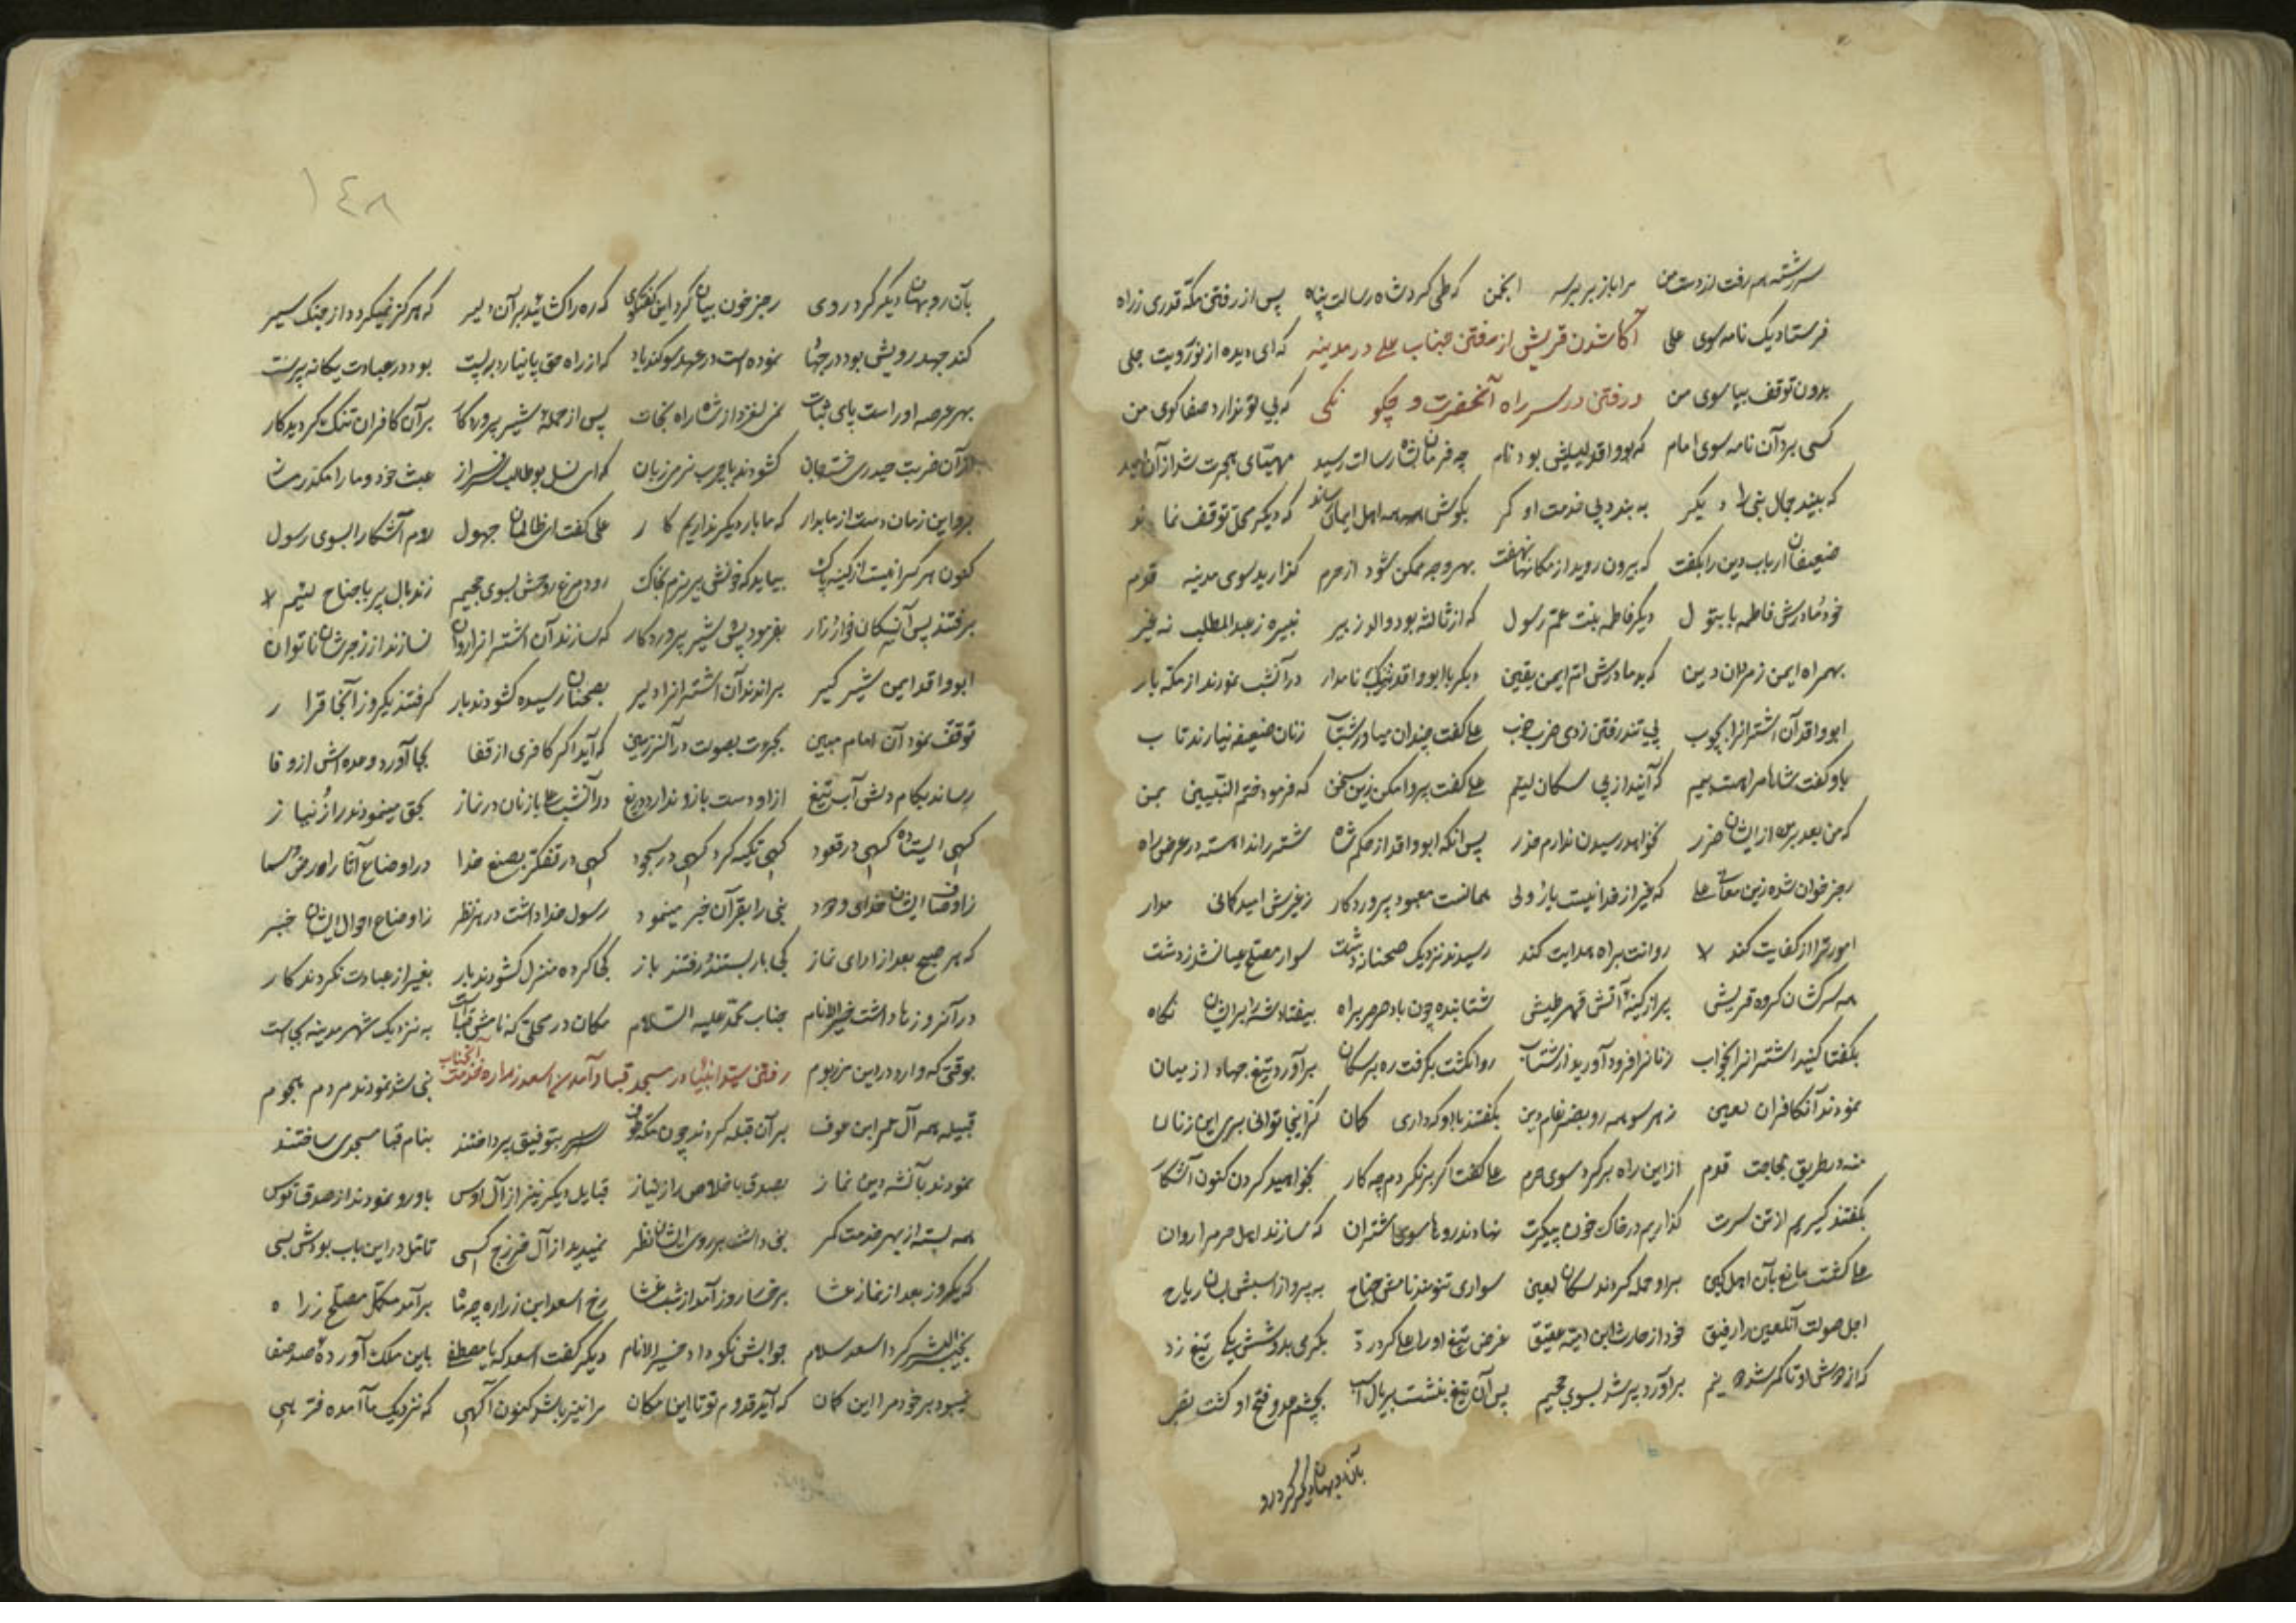 سر رشته هم رفت از دست من مرا باز بر بر سر انجمن که طی کرد شاه رسالت پناه پس از رفتن مکه قدری ز راه
فرستاد یک نامه سوی علی آکاه شدن قریش از رفتن جناب علی در مدینه که ای دیده از نور رویت جلی
بدون توقف بیا سوی من و رفتن در سر راه آنحضرت و چگونگی که بی تو ندارد صفا کوی من
کسی برد آن نامه سوی امام که بو واقد لیثیش بود نام چه فرمان شاه رسالت رسید مهیای هجرت شد از آن امید
که بیند جمال نبی را دیگر به بندد پی خدمت او کمر بگوش همه اهل ایمان رساند که دیگر محل توقف نماند
ضعیفان ارباب دین را بگفت که بیرون روید از مکانها نهفت بهر وجه ممکن شود از حرم گذارید سوی مدینه قدم
خود و مادرش فاطمه با بتول دیگر فاطمه بنت عم رسول که از ثالثه بود والد زبیر نبیره ز عبدالمطلب نه غیر
بهمراه ایمن ز مردان دین که بد مادرش ام ایمن یقین دیگر با ابو واقد نامدار در آنشب نمودند از مکه بار
ابو واقد آن اشتران را بچوب پی تند رفتن زدی ضرب خوب علی گفت چندان میاور شتاب زنان ضعیفه نیارند تاب
باو گفت شاها مرا هست بیم که آیند از پی سگان لئیم علی گفت پروا مکن زین سخن که فرمود ختم النبیین بمن
که من بعد نرسد از ایشان ضرر نخواهد رسیدن ندارم حذر پس آنکه ابو واقد از حکم شاه شتر راند آهسته در عرض راه
رجز خوان شده زین معانی علی که غیر از خدا نیست یار و ولی همانست معبود پروردگار ز غیرش امید کانی مدار
امور ترا او کفایت کند روانت براه هدایت کند رسیدند نزدیک ضجنان ز دشت سوار مصلح عیان شد ز دشت
همه سرکشان گروه قریش پر از کینه و آتش قهر و طیش شتابنده چون باد صرصر براه بیفتاد شه را بر ایشان نگاه
بگفتا کنید اشتران را بخواب زنان را فرود آورید از شتاب روان گشت بگرفت ره بر سگان برآورد تیغ جهاد از میان
نمودند آن کافران لعین ز هر سو همه رو بضرغام دین بگفتند با او که داری گمان کز اینجا توانی بری این زنان
منه در طریق لجاجت قدم از این راه برگرد سوی حرم علی گفت اگر برنگردم چه کار بخواهید کردن کنون آشکار
بگفتند گیریم از تن سرت گذاریم در خاک خون پیکرت نهادند رو ها سوی اشتران که سازند اهل حرم را روان
علی گشت مانع بآن اهل کین بر او حمله کردند سگان لعین سواری تنومند نامش جناح به پرواز اسبش بسان ریاح
اجل صولت آن لعین را رفیق خود از حارث ابن امیه عقیق غرض تیغ او را علی کرد رد بگرمی بدوشش یکی تیغ زد
که از دوش او تا کمر شد دو نیم برآورد پر شد بسوی جحیم پس آن تیغ بنشست بر یال اسب بچشم عدو فتح او گشت
بآن روبهان دیگر کرد رو
١٤٨
بآن روبهان دیگر کرد روی رجز خوان بیان کرد این گفتگوی که ره را گشائید بر آن دلیر که هرگز نمیگردد از جنگ سیر
کند جهد رویش بود در جهاد نموده است در عهد سوگند یاد که از راه حق پا نیارد به پست بود در عبادت یگانه پرست
بهر عرصه او راست پای ثبات نمی لغزد از شاه راه نجات پس از حمله شیر پروردگار بر آن کافران تنگ گردید کار
از آن ضربت حیدری خسته جان گشودند با چرب نرمی زبان که ای نسل بوطالب سرفراز عبث خود و ما را مکدر مساز
برو این زمان دست از ما بدار که ما با تو دیگر نداریم کار علی گفت ای ظالمان جهول روم آشکارا بسوی رسول
کنون هر کسی را نیست از کینه باک بیاید که خونش بریزم بخاک رود مرغ روحش بسوی جحیم زند بال پر با جناح لئیم
برفتند پس آن سگان فوار زار بفرمود پس شیر پروردگار که سازند آن اشتران را روان نسازند از زجرشان ناتوان
ابو واقد ایمن شیر گیر براندند آن اشتران را دلیر بضجنان رسیده گشودند بار گرفتند یکروز آنجا قرار
توقف نمود آن امام مبین بجرئت بصولت در آن سرزمین که آید اگر کافری از قفا بجا آورد وعده اش از وفا
رساند بکام دلش آب تیغ از او دست بازو ندارد دریغ در آنشب علی با زنان در نماز بحق مینمودند راز و نیاز
گهی ایستاده گهی در قعود گهی تکیه کرد گهی در سجود گهی در تفکر بصنع خدا در اوضاع آثار ارض و سما
ز اوصاف ایشان خدای ودود نبی را بقرآن خبر مینمود رسول خدا داشت در هر نظر ز اوضاع احوال ایشان خبر
که هر صبح بعد از ادای نماز کجی بار بستند و رفتند باز کجی کرده منزل گشودند بار بغیر از عبادت نکردند کار
در آن روزها داشت خیر الانام جناب محمد علیه السلام مکان در محلی که نامش قباست به نزدیک شهر مدینه بجاست
بوقتی که وارد در این مرز بوم رفتن سید انبیا در مسجد قبا و آمدن اسعد زراره خدمت آنجناب نبی شد نمودند مردم هجوم
قبیله همه آل عمر ابن عوف بر آن قبله کردند چون مکه طوف بتوفیق پرداختند بنام قبا مسجدی ساختند
نمودند با آن شه دین نماز بصدق باخلاص راز نیاز قبایل دیگر نیز از آل اوس باو رو نمودند از صدق
همه بسته از بهر خدمت کمر نبی داشت بر روی ایشان نظر نمیدید از آل خزرج کسی تامل در این باب بودش بسی
که یکروز بعد از نماز عشا بر خسار روز آمد از شب غشا رخ اسعد ابن زراره چه ماه برآمد مکمل مصلح ز راه
بخیر البشر کرد اسعد سلام جوابش نکو داد خیر الانام دیگر گفت اسعد که یا مصطفی باین ملک آورده صد صفا
نبود بر خود مرا این گمان که آید قدوم تو تا این مکان مرا نیز باشد کنون آگهی که نزدیک ما آمده فرهی